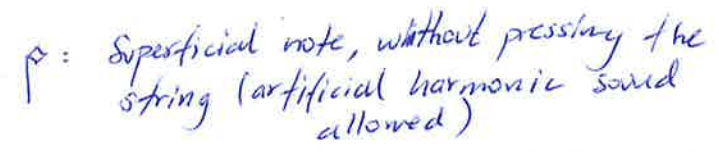 : Superficial note, whithout pressing the
string (artificial harmonic sound
allowed)